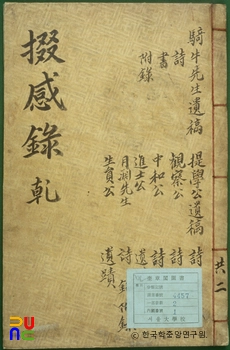 掇感錄 乾
騎牛先生遺稿
詩
書
附錄
提學公遺稿 詩
觀察公 詩
中和公 詩
進士公
月淵先生 詩
生員公 遺蹟
共二
서울大學校
© 한국학중앙연구원